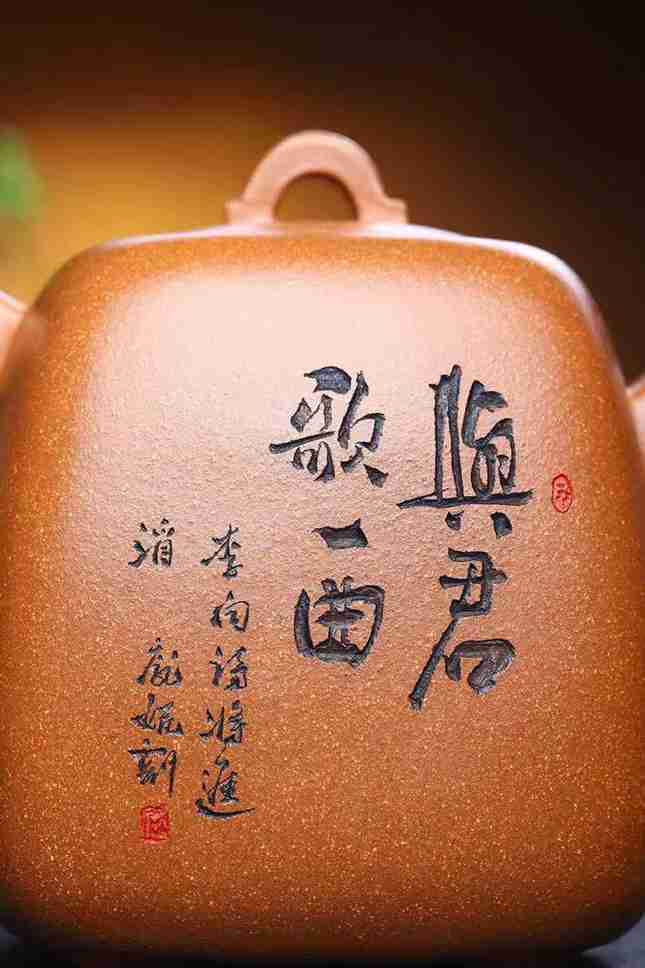 與君
歌一曲
李白詩將進
酒 刻